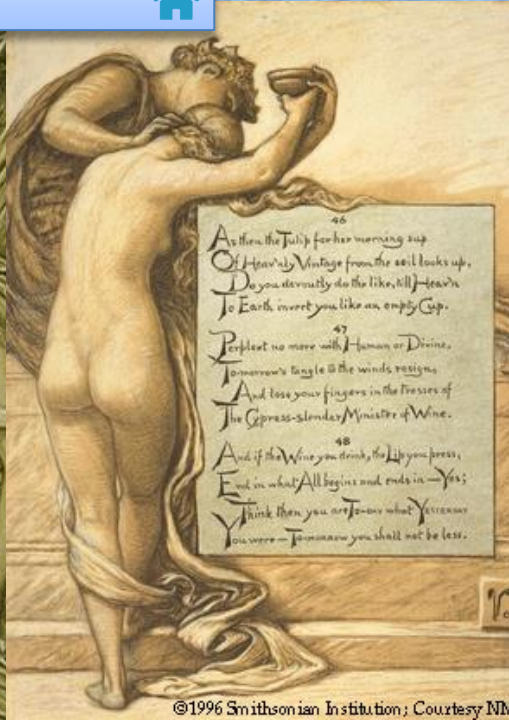 46
As then the Tulip for her morning sup
Of Heav'nly Vintage from the soil looks up,
Do you devoutly do the like, till Heav'n
To Earth invert you like an empty Cup.
47
Perplext no more with Human or Divine,
To-morrow's tangle to the winds resign,
And lose your fingers in the tresses of
The Cypress-slender Minister of Wine.
48
And if the Wine you drink, the Lip you press,
End in what All begins and ends in — Yes;
Think then you are To-day what Yesterday
You were — To-morrow you shall not be less.
©1996 Smithsonian Institution; Courtesy